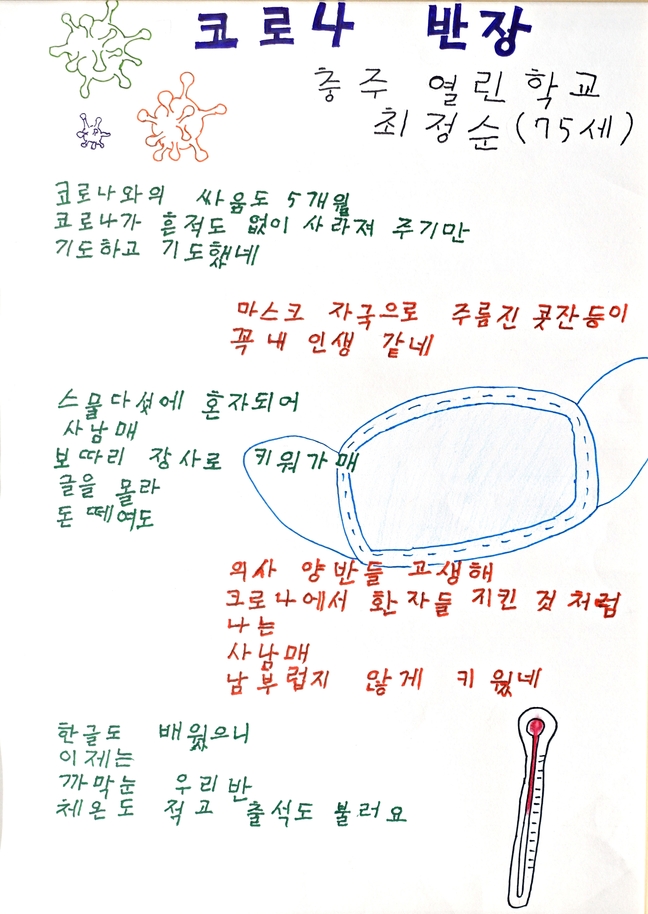 코로나 반장
충주 열린학교
최정순(75세)
코로나와의 싸움도 5개월
코로나가 흔적도 없이 사라져 주기만
기도하고 기도했네
마스크 자국으로 주름진 콧잔등이
꼭 내 인생 같네
스물다섯에 혼자되어
사남매
보따리 장사로 키워가매
글을 몰라
돈 떼여도
의사 양반들 고생해
코로나에서 환자들 지킨 것 처럼
나는
사남매
남부럽지 않게 키웠네
한글도 배웠으니
이제는
까막눈 우리반
체온도 적고 출석도 불러요